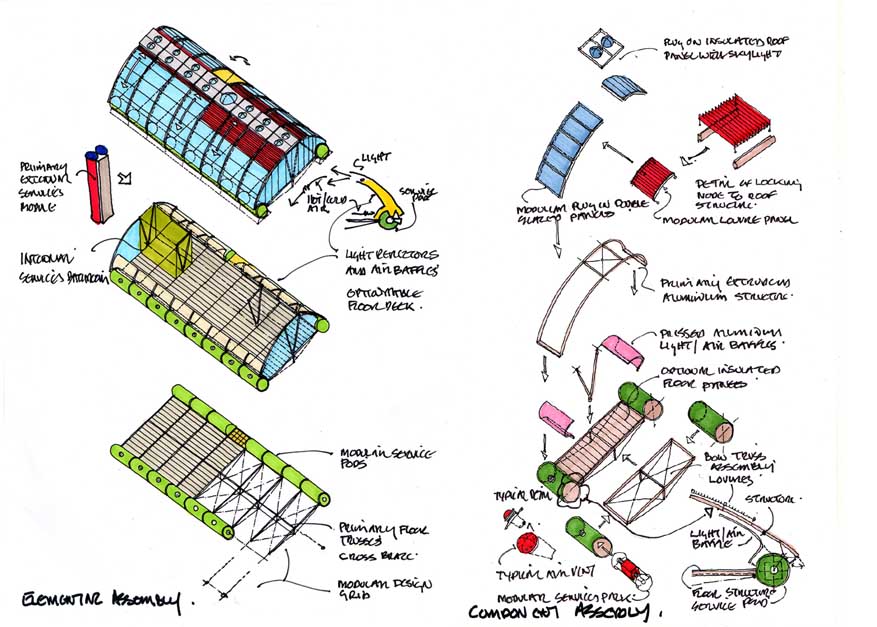 PRIMARY
EXTERNAL
SERVICES
MODULE
LIGHT
HOT/COLD
AIR
SERVICE
POD
INTERNAL
SERVICES PARTITION
LIGHT REFLECTORS
AND AIR BAFFLES
FLOOR DECK.
MODULAR SERVICE
PODS
PRIMARY FLOOR
TRUSSES
CROSS BRACE.
MODULAR DESIGN
GRID
ELEMENTAL ASSEMBLY.
PLUG ON INSULATED ROOF
PANEL WITH SKYLIGHT
MODULAR PLUG IN DOUBLE
GLAZED PANELS
DETAIL OF LOCKING
NODE TO ROOF
STRUCTURE.
MODULAR LOUVRE PANEL
PRIMARY EXTRUDED
ALUMINIUM STRUCTURE.
PRESSED ALUMINIUM
LIGHT/AIR BAFFLES.
OPTIONAL INSULATED
FLOOR PANELS
BOW TRUSS
ASSEMBLY
LOUVRES
STRUCTURE.
TYPICAL DETAIL
LIGHT/AIR
BAFFLE
TYPICAL AIR VENT
MODULAR SERVICE PACK.
FLOOR STRUCTURE
SERVICE POD
COMPONENT ASSEMBLY.